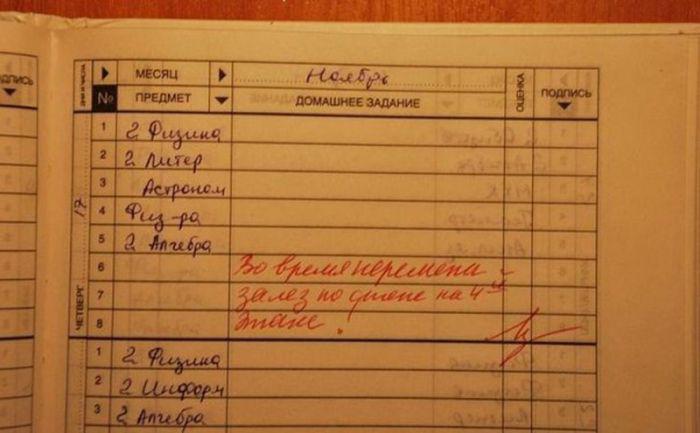 ОДПИСЬ
ДНИ И ЧИСЛА
МЕСЯЦ Ноябрь
№ ПРЕДМЕТ ДОМАШНЕЕ ЗАДАНИЕ ОЦЕНКА ПОДПИСЬ
ЧЕТВЕРГ 17
1 2 Физика
2 2 Литер
3 Астроном
4 Физ-ра
5 2 Алгебра
6 Во время перемены
7 залез по стене на 4ый
8 этаж!
1 2 Физика
2 2 Информ
3 2 Алгебра